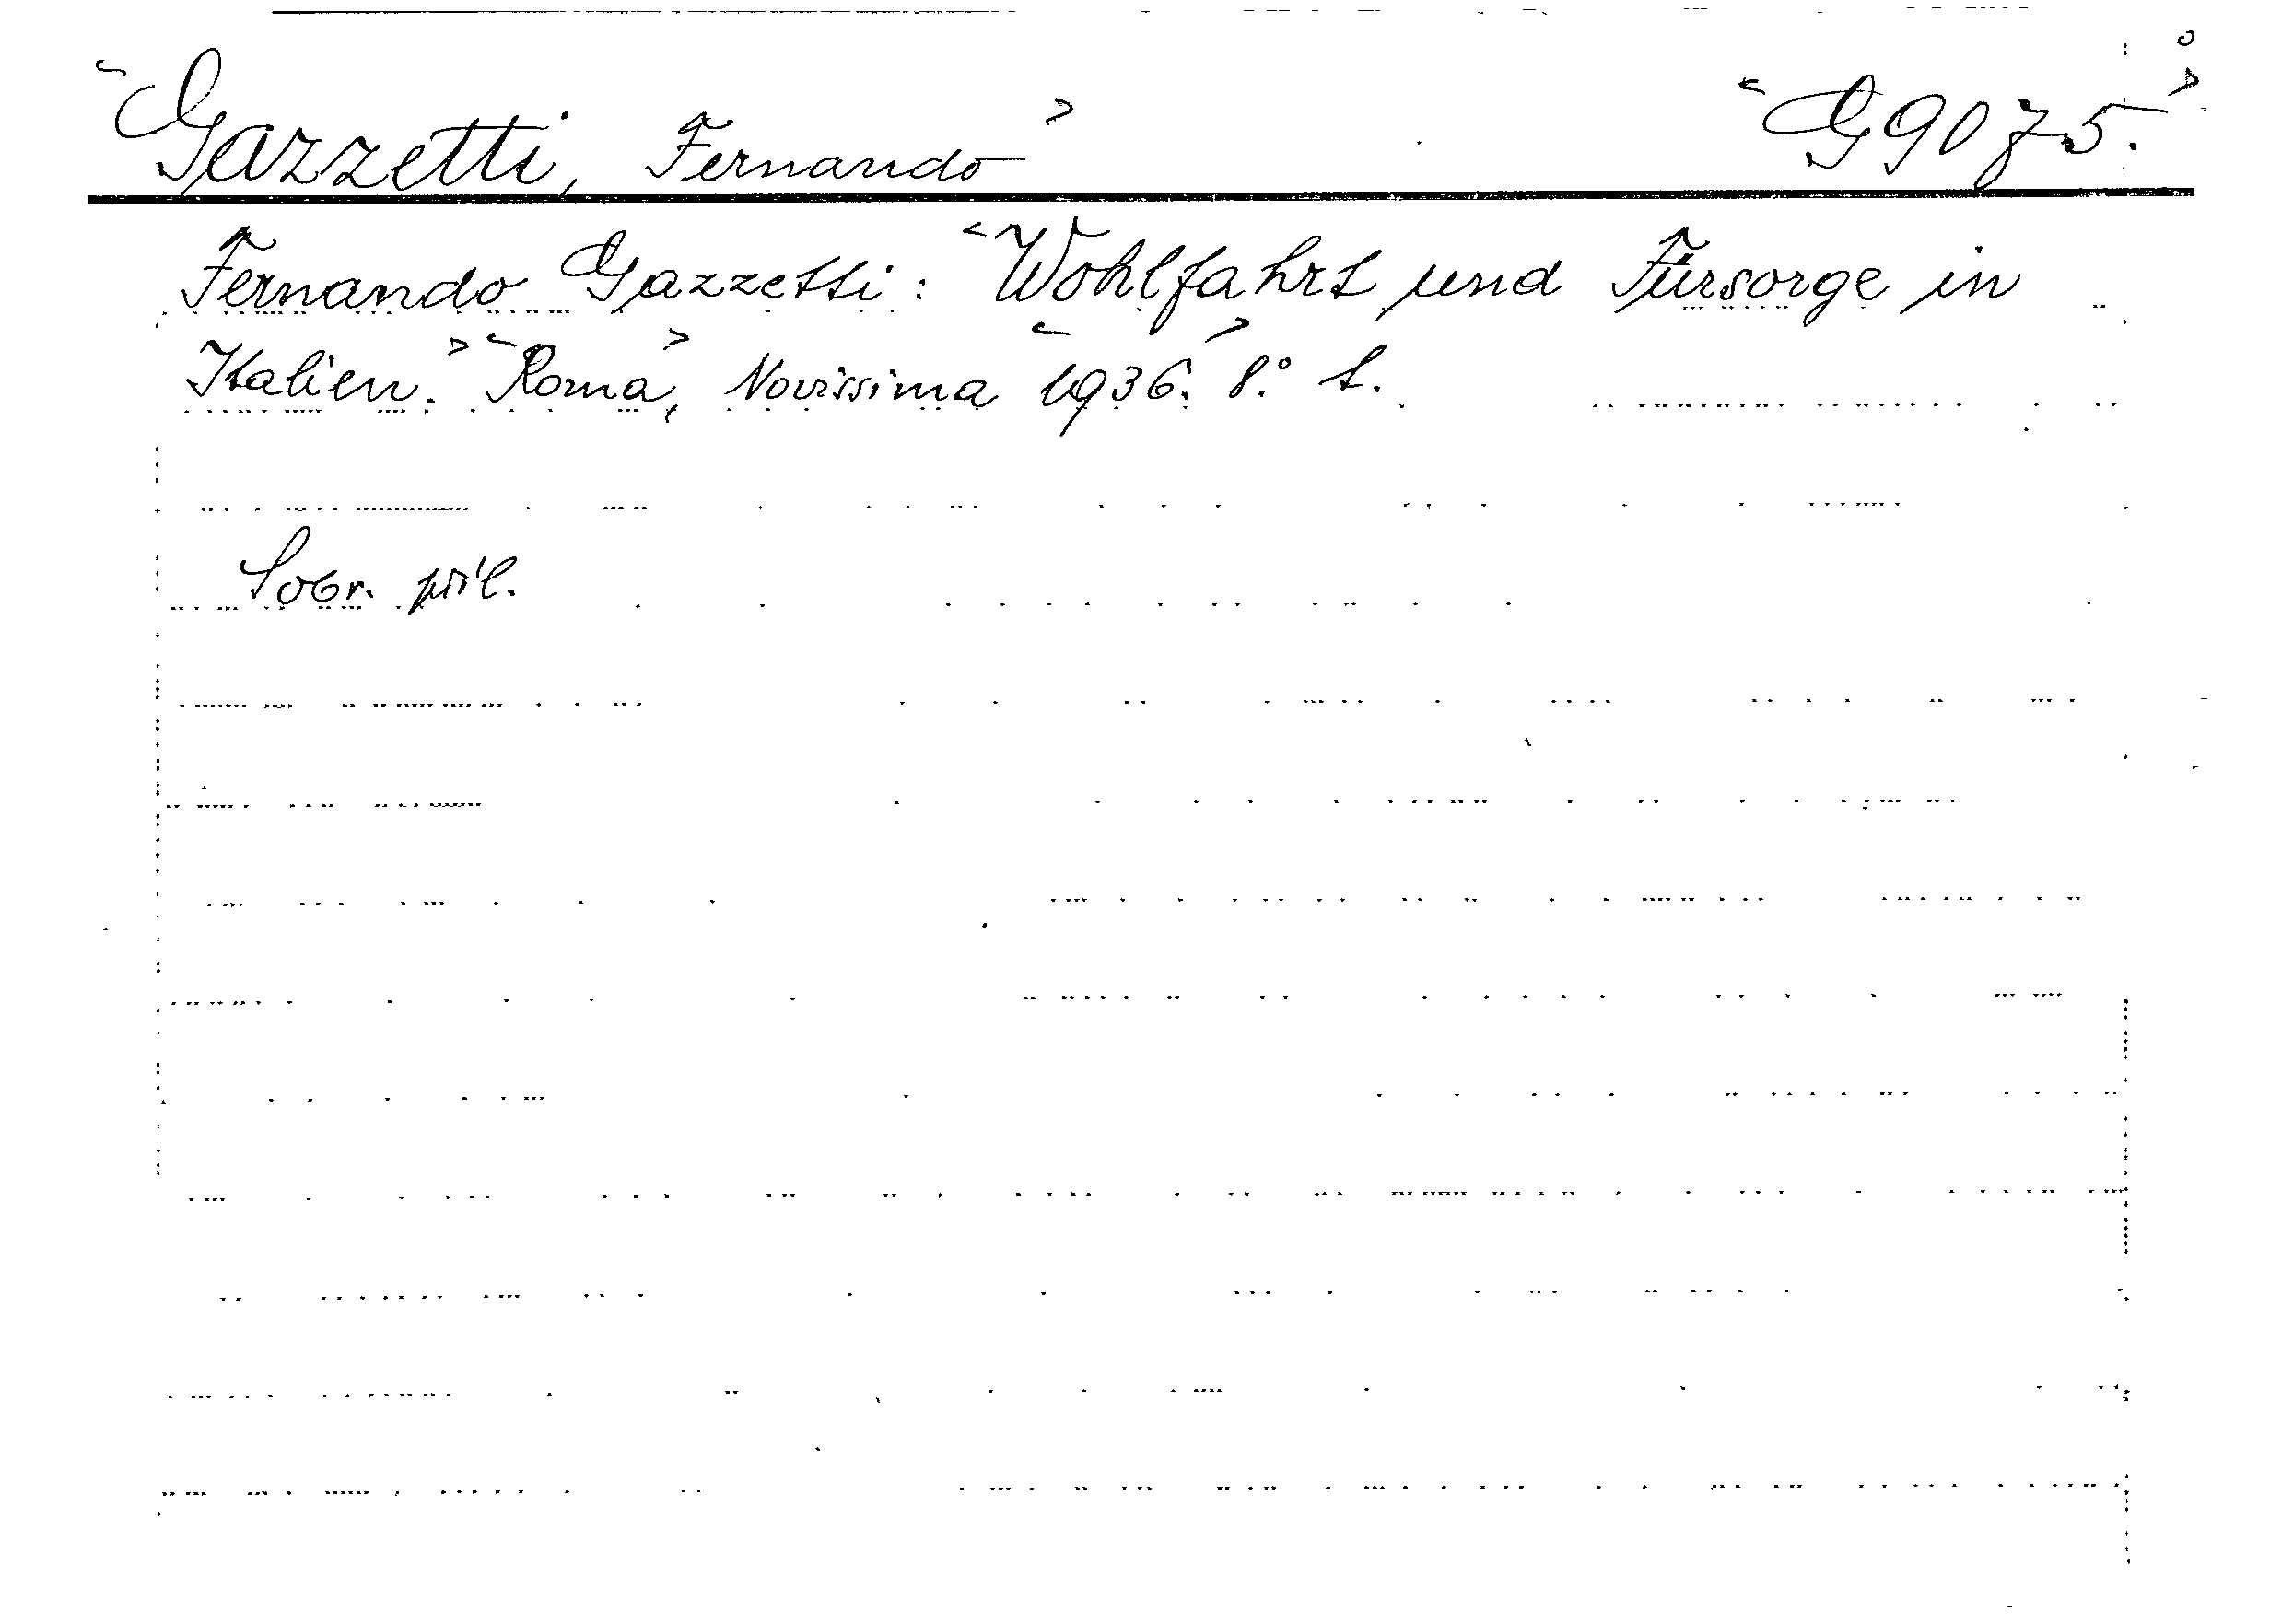 Gazzetti, Fernando G9075.
Fernando Gazzetti: Wohlfahrt und Fürsorge in
Italien. Roma, Novissima 1936. 8.° t.
Sobr. pril.